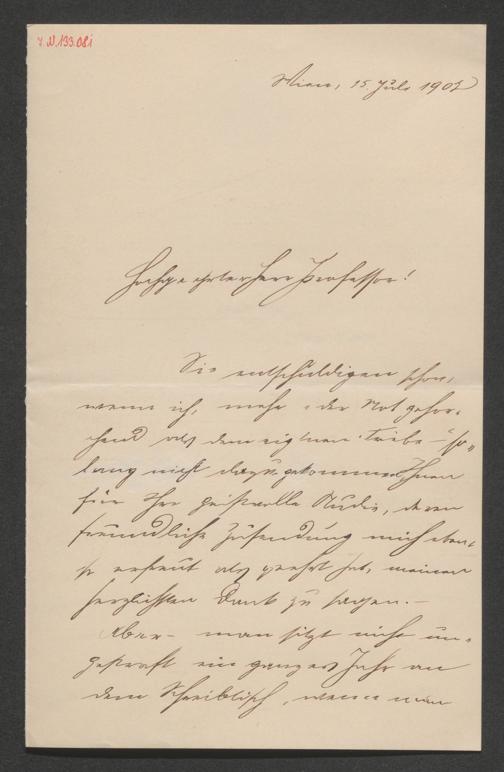 I. N. 133.081
Wien, 15. Juli 1902
Hochgeehrter Herr Professor!
Sie entschuldigen schon,
wenn ich, mehr „der Not gehor-
chend als dem eig'nen Triebe –“ so
lang nicht dazu gekommen Ihnen
für Ihre geistvolle Studie, deren
freundliche Zusendung mich eben-
so erfreut als geehrt hat, meinen
herzlichsten Dank zu sagen. –
Aber – man sitzt nicht un-
gestraft ein ganzes Jahr an
dem Schreibtisch, wenn man